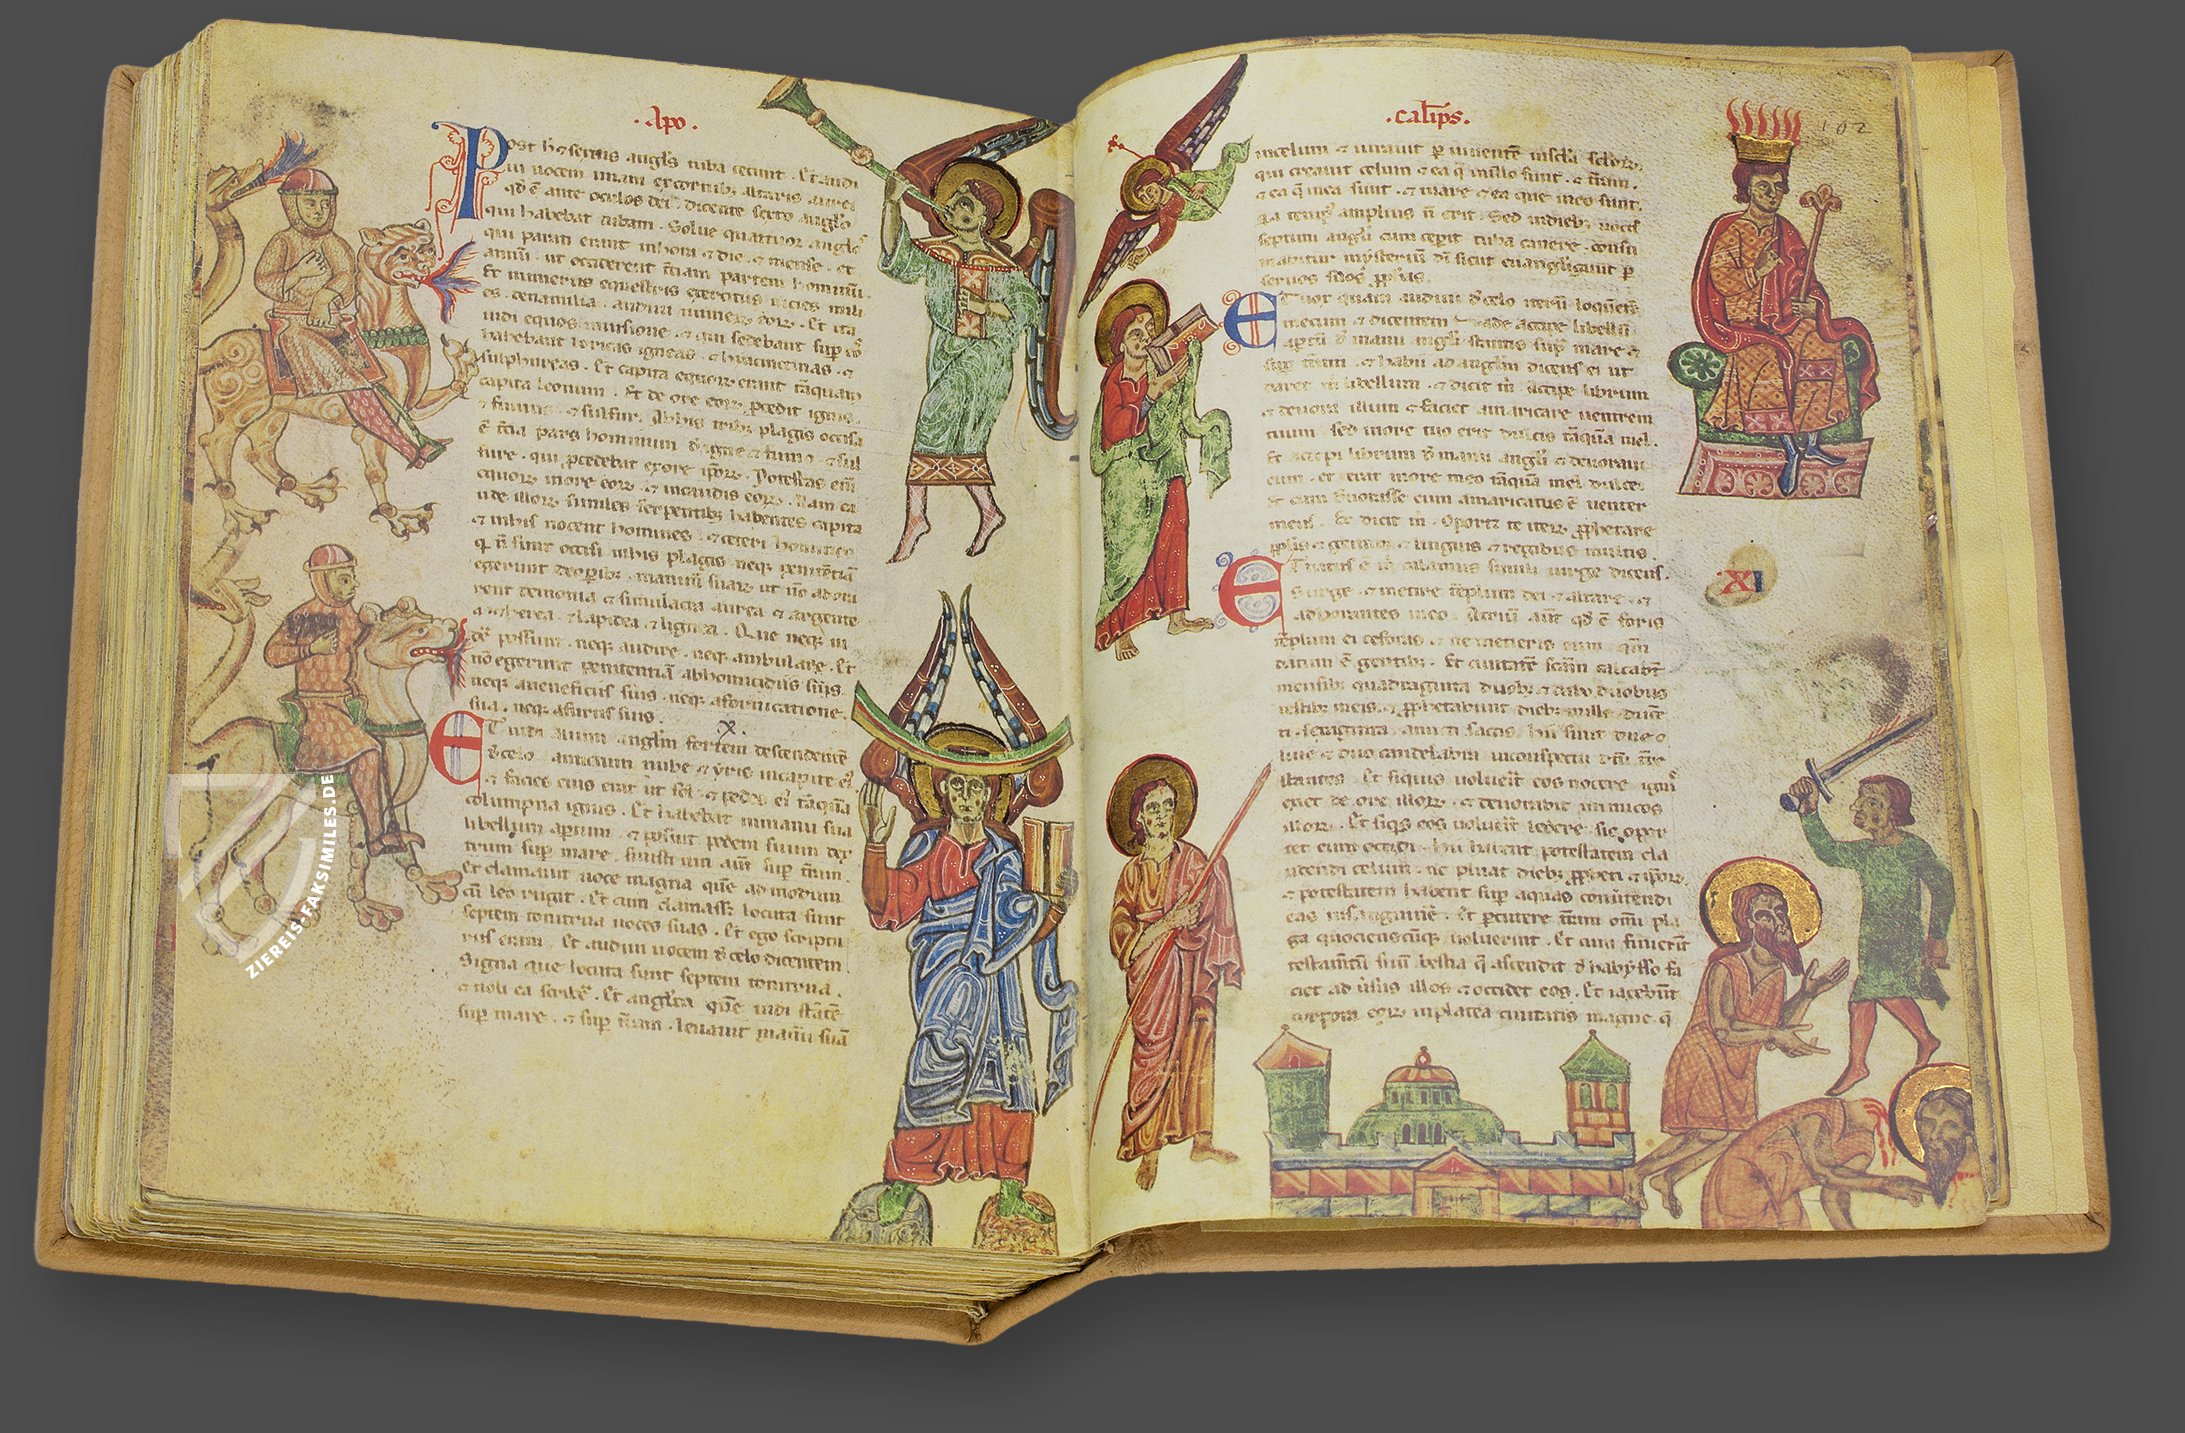 ·Apo·
Post h̄ sextus angl's tuba cecinit. Et audi
ui uocem unam ex cornib; altaris aurei
qđ ē ante oculos dei. dicentē sexto anglo
qui habebat tubam. Solue quattuor anglos
qui parati erant in horā ⁊ diē ⁊ mensē ⁊
annū. ut occiderent t̄ciam partem hominū.
Et numerus equestris exercitus uicies mili
es dena milia. Audiui numerū eoꝝ. Et ita
uidi equos in uisione. ⁊ qui sedebant sup eos
habebant loricas igneas ⁊ hiacinctinas ⁊
sulphureas. Et capita equoꝝ erant tāquam
capita leonum. Et de ore eoꝝ p̄cedit ignis
⁊ fumus ⁊ sulfur. Ab his trib; plagis occisa
ē t̄cia pars hominum đ igne ⁊ fumo ⁊ sul
fure. qui p̄cedebat ex ore ip̄oꝝ. Potestas eni
equoꝝ in ore eoꝝ ⁊ in caudis eoꝝ. Nam cau
de illoꝝ similes serpentib; habentes capita
⁊ in his nocent homines. ⁊ ceteri homines
q n̄ sunt occisi in his plagis neq; penitentiā
egerunt de opib; manuū suaꝝ ut nō adora
rent demonia ⁊ simulacra aurea ⁊ argentea
⁊ erea ⁊ lapidea ⁊ lignea. Que neq; ui
dere possunt. neq; audire. neq; ambulare. Et
nō egerunt penitentiā ab homicidiis suis.
neq; a ueneficiis suis. neq; a fornicatione
sua. neq; a furtis suis.
X.
Et uidi alium angl'm fortem descendentē
đ celo. amictum nube ⁊ yris in capite ei'
⁊ facies eius erat ut sol. ⁊ pedes ei' tāquā
columpna ignis. Et habebat in manu sua
libellum aptum. ⁊ posuit pedem suum dex
trum sup mare. sinistrum aūt sup t̄ram.
Et clamauit uoce magna quē ad modum
cū leo rugit. Et cum clamass; locuta sunt
septem tonitrua uoces suas. Et ego scriptu
rus eram. Et audiui uocem đ celo dicentem.
Signa que locuta sunt septem tonitrua.
⁊ noli ea scribe. Et angl's quē uidi stātē
sup mare. ⁊ sup t̄ram. leuauit manū suā
·calips·
102
in celum ⁊ iurauit p uiuentē in sc̄la sc̄loꝝ.
qui creauit celum ⁊ ea q̄ in illo sunt. ⁊ t̄ram.
⁊ ea q̄ in ea sunt. ⁊ mare ⁊ ea que in eo sunt.
Q̄a temp' amplius n̄ erit. Sed in dieb; uocis
septimi angl'i cum cep̄it tuba canere. consu
mabitur mysterium đi sicut euangl'izauit p
seruos suos p̄p̄has.
Et uox quam audiui đ celo iterū loquentē
mecum ⁊ dicentem. Vade accipe libellū
aptū đ manu angl'i stantis sup mare ⁊
sup t̄ram. ⁊ habii ad angl'm dicens ei ut
daret m̄ libellum. ⁊ dicit m̄. Accipe librum
⁊ deuora illum ⁊ faciet amaricare uentrem
tuum. sed in ore tuo erit dulcis tāquā mel.
Et accepi librum đ manu angl'i ⁊ deuoraui
eum. et erat in ore meo tāquā mel dulce.
Et cum đuorasse eum amaricatus ē uenter
meus. Et dicit m̄. Oportz te iteꝝ p̄phetare
pp̄lis ⁊ gentib; ⁊ linguis ⁊ regibus multis.
XI
Et datus ē m̄ calamus simil' uirge dicens.
Surge ⁊ metire tēplum dei ⁊ altare ⁊
adorantes in eo. Atriū aūt qđ ē foris
tēplum ei ce foras ⁊ ne metieris eum. qm̄
datum ē gentib;. Et ciuitatē sc̄am calcabt̄
mensib; quadraginta duob;. ⁊ dabo duobus
testib; meis. ⁊ p̄phetabunt dieb; mille ducē
ti sexaginta amicti saccis. Hii sunt due o
liue ⁊ duo candelabra in conspectu dn̄i t̄re
stantes. Et siquis uoluerit eos nocere ignis
exiet de ore illoꝝ. ⁊ deuorabit inimicos
illoꝝ. Et siqis eos uolu̅it ledere sic opor
tet eum occidi. Hii habent potestatem cla
udendi celum. ne pluat dieb; p̄pheti ⁊ ip̄oꝝ.
⁊ potestatem habent sup aquas conu̅tendi
eas in sanguinē. Et p̄cutere t̄ram om̄i pla
ga quocienscūq; uoluerint. Et cum finierūt
testamtū suū. bestia q̄ ascendit đ habysso fa
ciet ad ūsus illos ⁊ occidet eos. Et iacebūt
corpora eoꝝ in platea ciuitatis magne. q̄
ZIEREIS-FAKSIMILES.DE